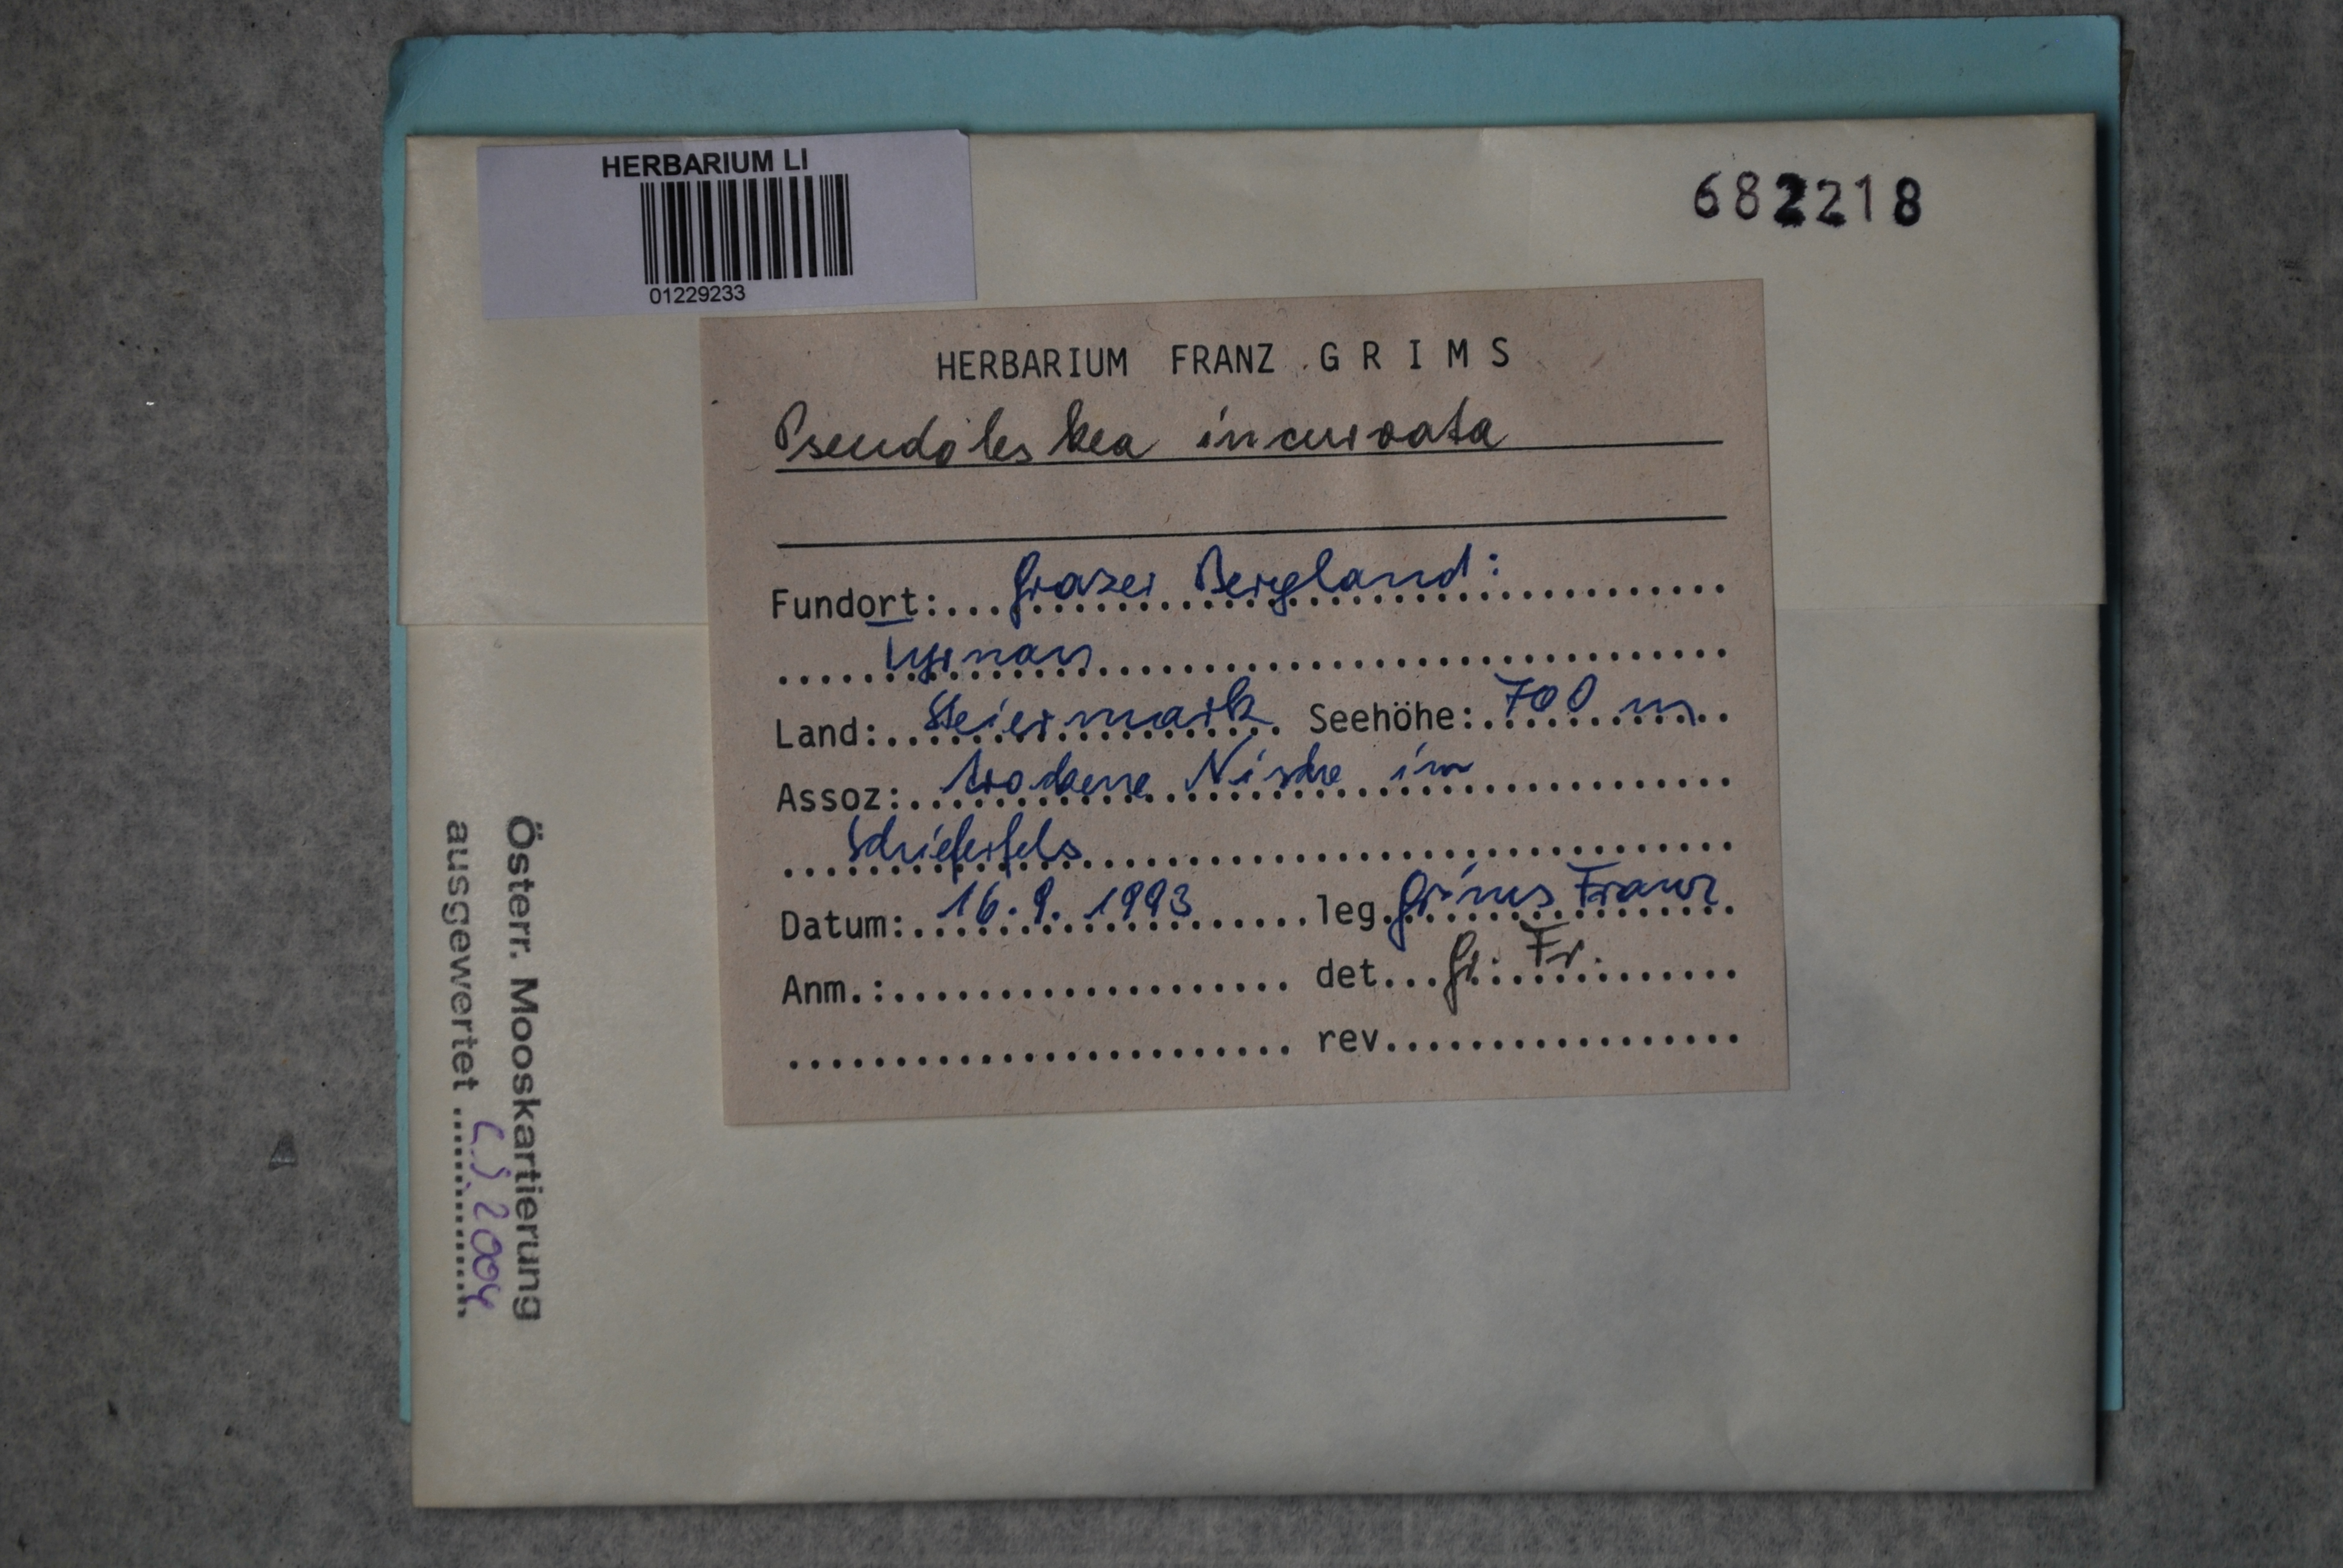 HERBARIUM LI
01229233
682218
HERBARIUM FRANZ GRIMS
Pseudoleskea incurvata
Fundort: Grazer Bergland:
Land: Steiermark Seehöhe: 700 m
Assoz: trockene Nische im
Schieferfels
Datum: 16.9.1993 leg. Grims Franz
Anm.: det. Gr. Fr.
rev.
Österr. Mooskartierung
ausgewertet 2004